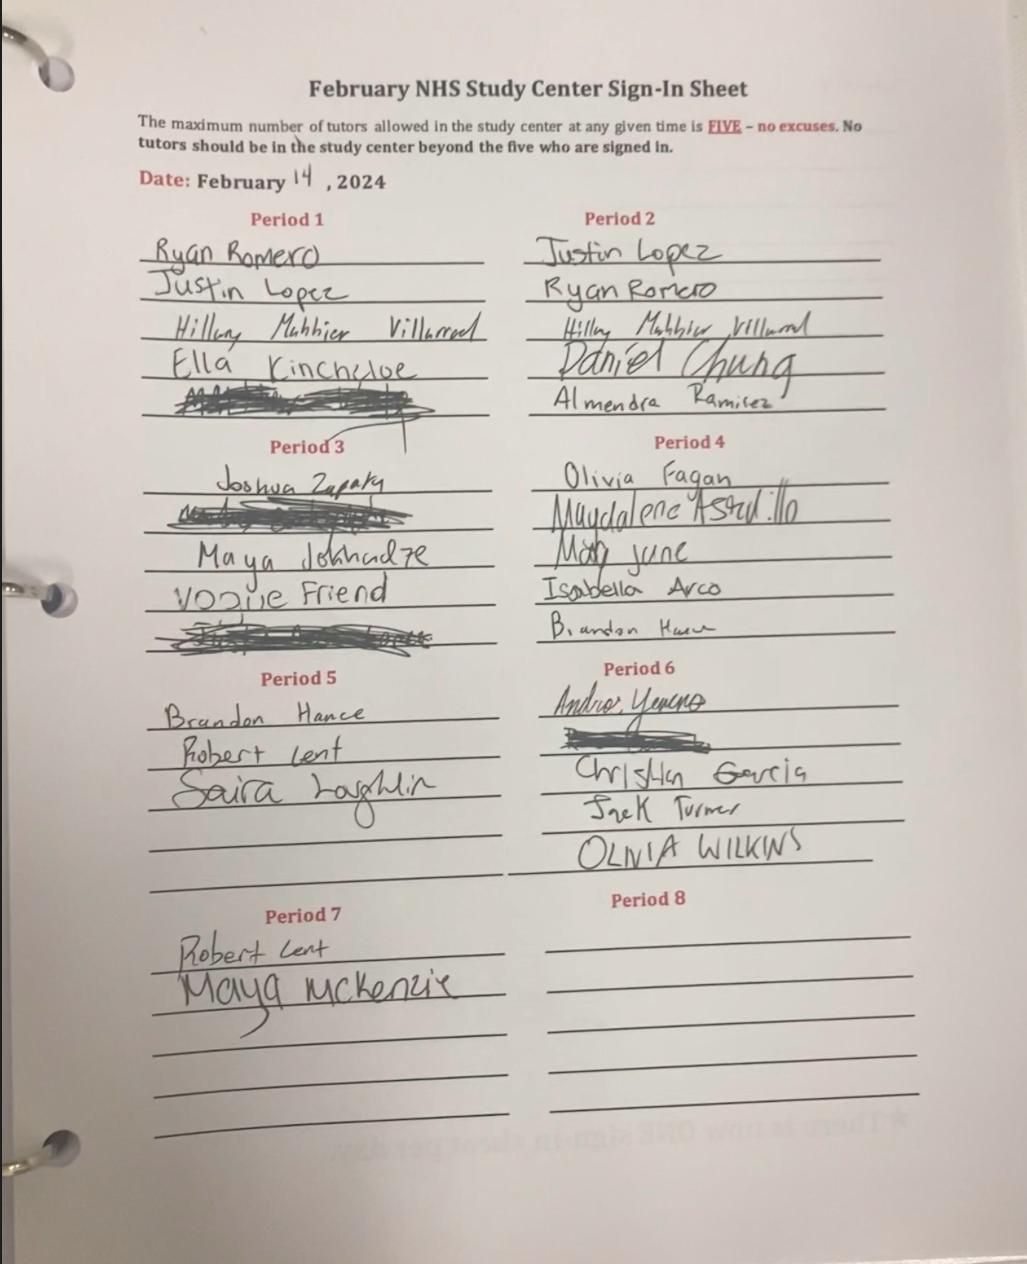 February NHS Study Center Sign-In Sheet
The maximum number of tutors allowed in the study center at any given time is FIVE – no excuses. No
tutors should be in the study center beyond the five who are signed in.
Date: February 14, 2024
Period 1
Ryan Romero
Justin Lopez
Hillary Villarreal
Ella Kincheloe
Period 2
Justin Lopez
Ryan Romero
Daniel Chung
Almendra Ramirez
Period 3
Joshua
Maya
Friend
Period 4
Olivia Fagan
Magdalena Astudillo
June
Isabella Arco
Brandon
Period 5
Brandon Hance
Robert Lent
Saira Laughlin
Period 6
Christian Garcia
Jack Turner
OLIVIA WILKINS
Period 7
Robert Lent
Maya McKenzie
Period 8